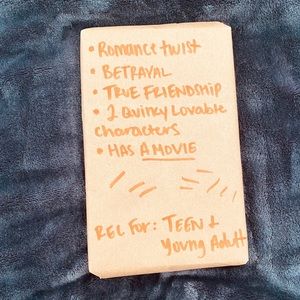 • Romance twist
• BETRAYAL
• TRUE FRIENDSHIP
• 2 Quirky Lovable
characters
• HAS A MOVIE
REC FOR: TEEN &
Young Adult